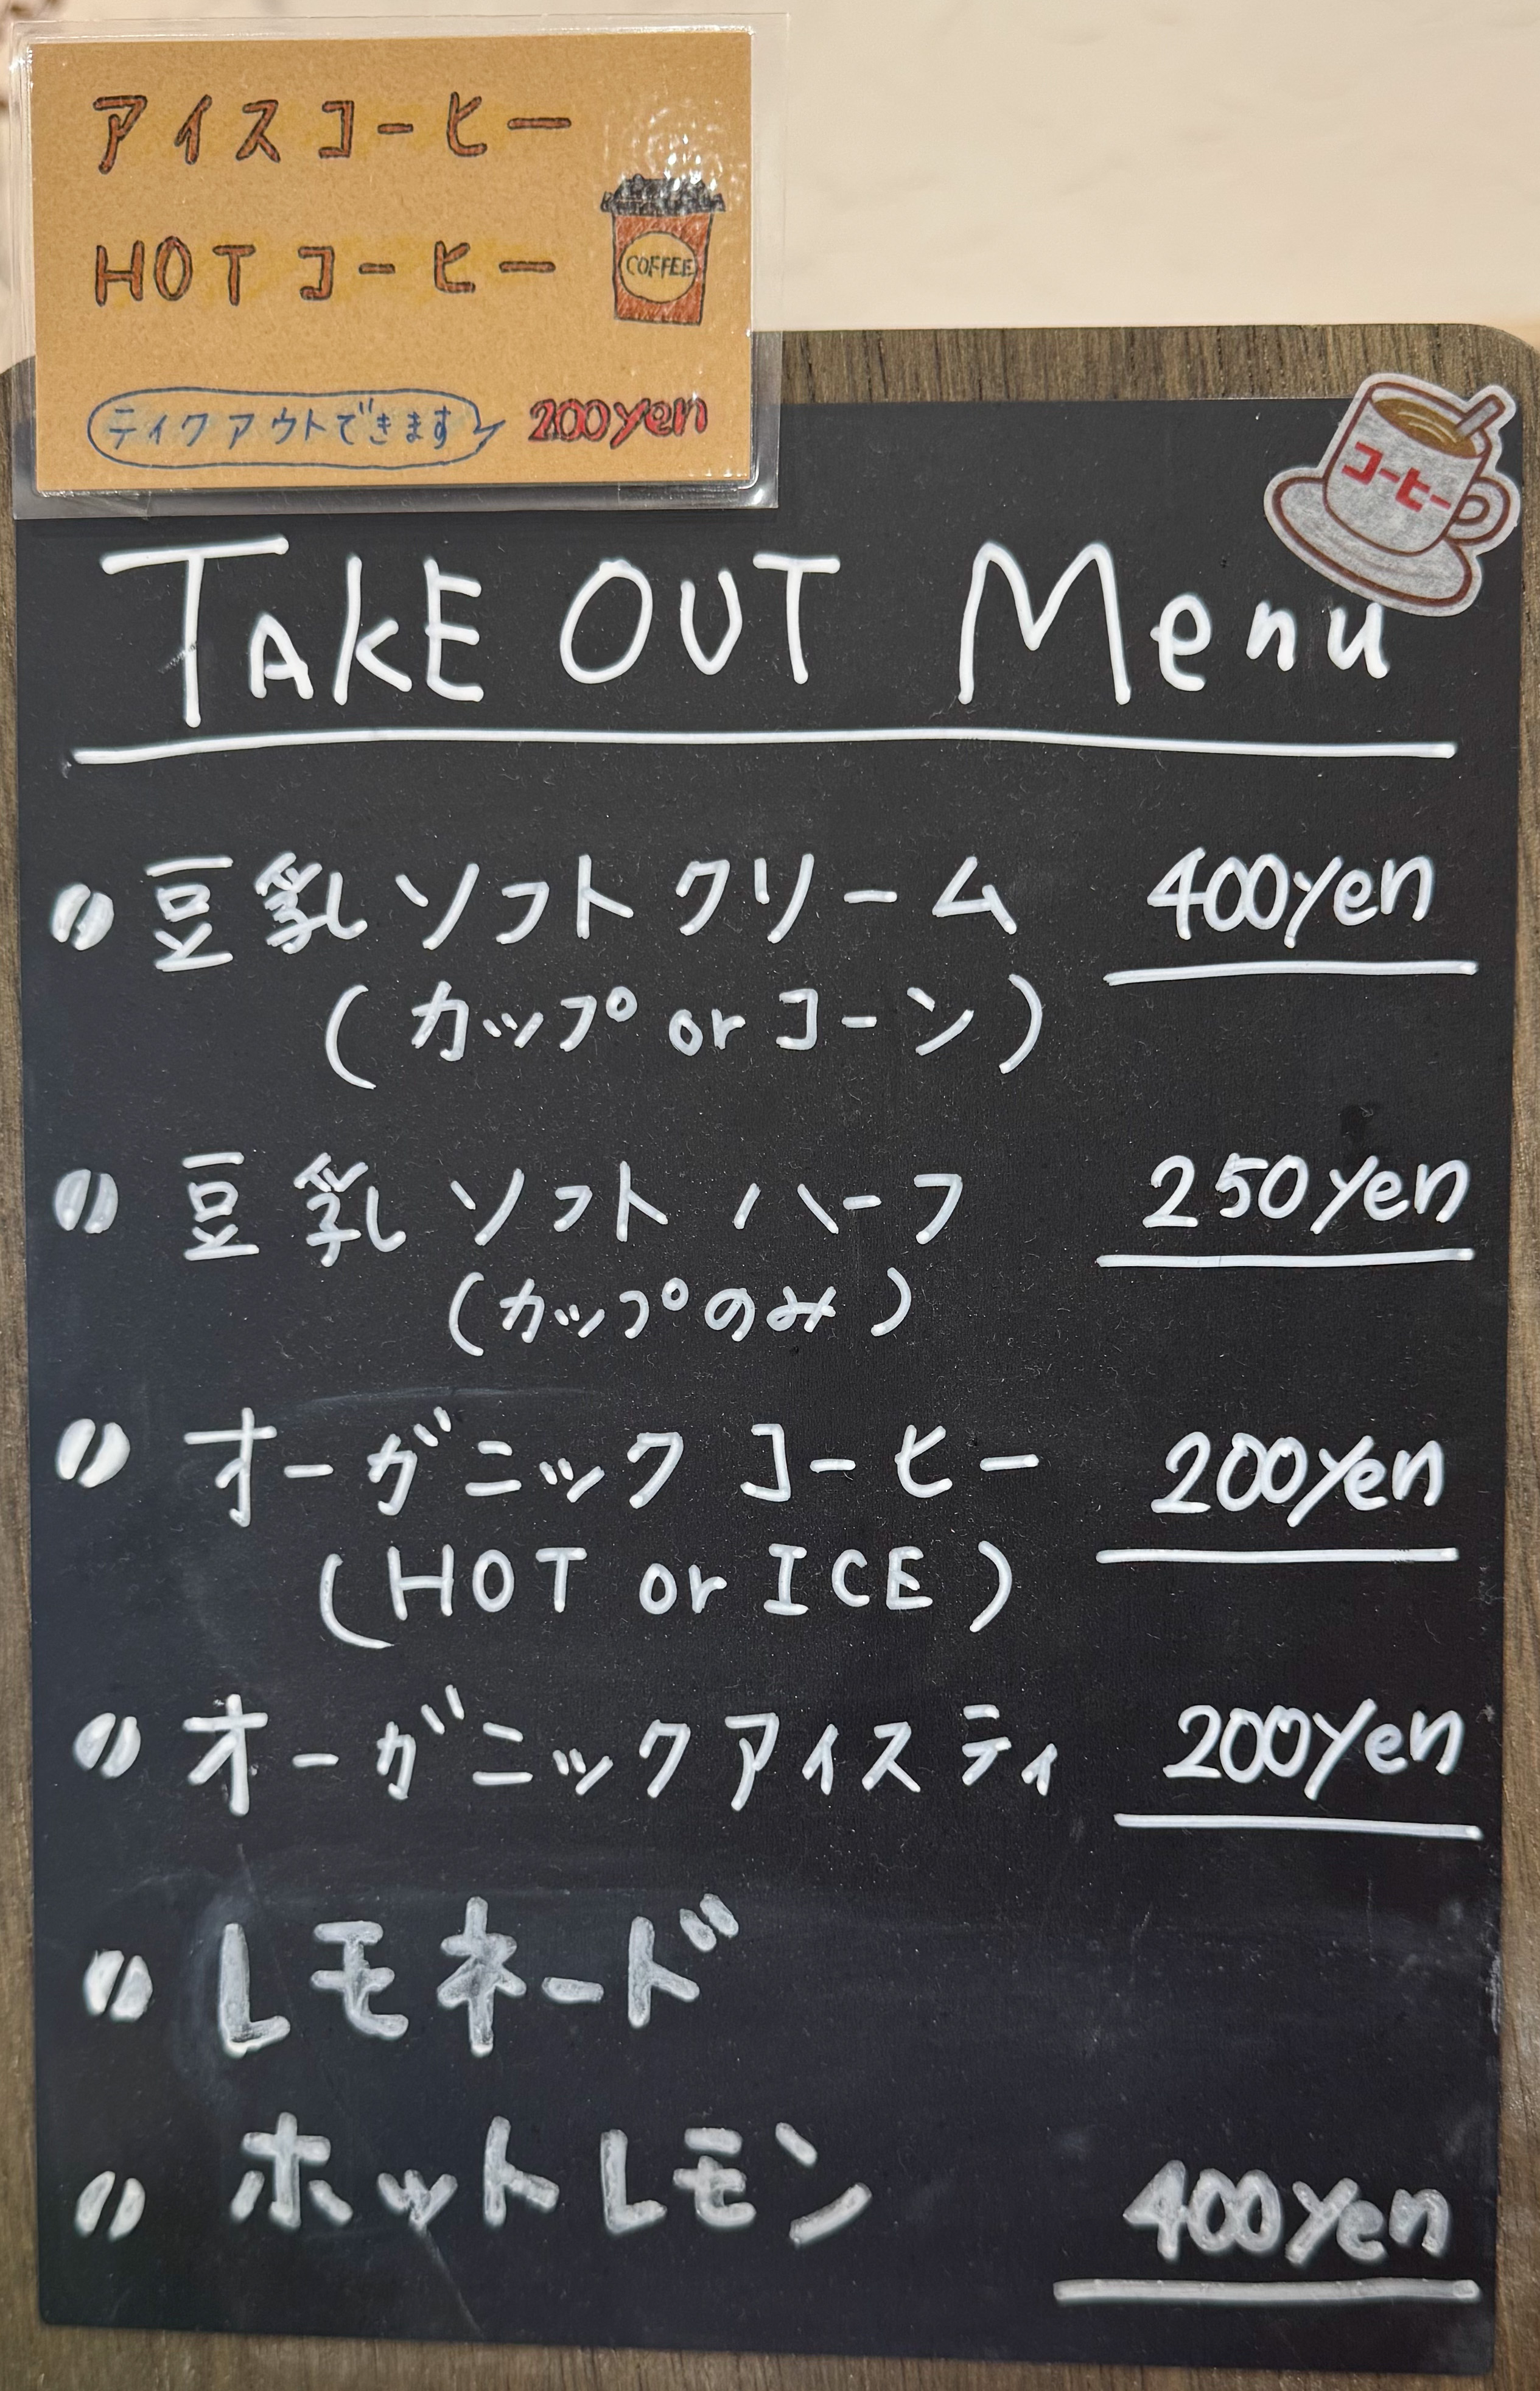 アイスコーヒー
HOTコーヒー
COFFEE
ティクアウトできます 200yen
コーヒー
TAKE OUT Menu
豆乳ソフトクリーム 400yen
(カップ or コーン)
豆乳ソフト ハーフ 250yen
(カップのみ)
オーガニックコーヒー 200yen
(HOT or ICE)
オーガニックアイスティ 200yen
レモネード
ホットレモン 400yen